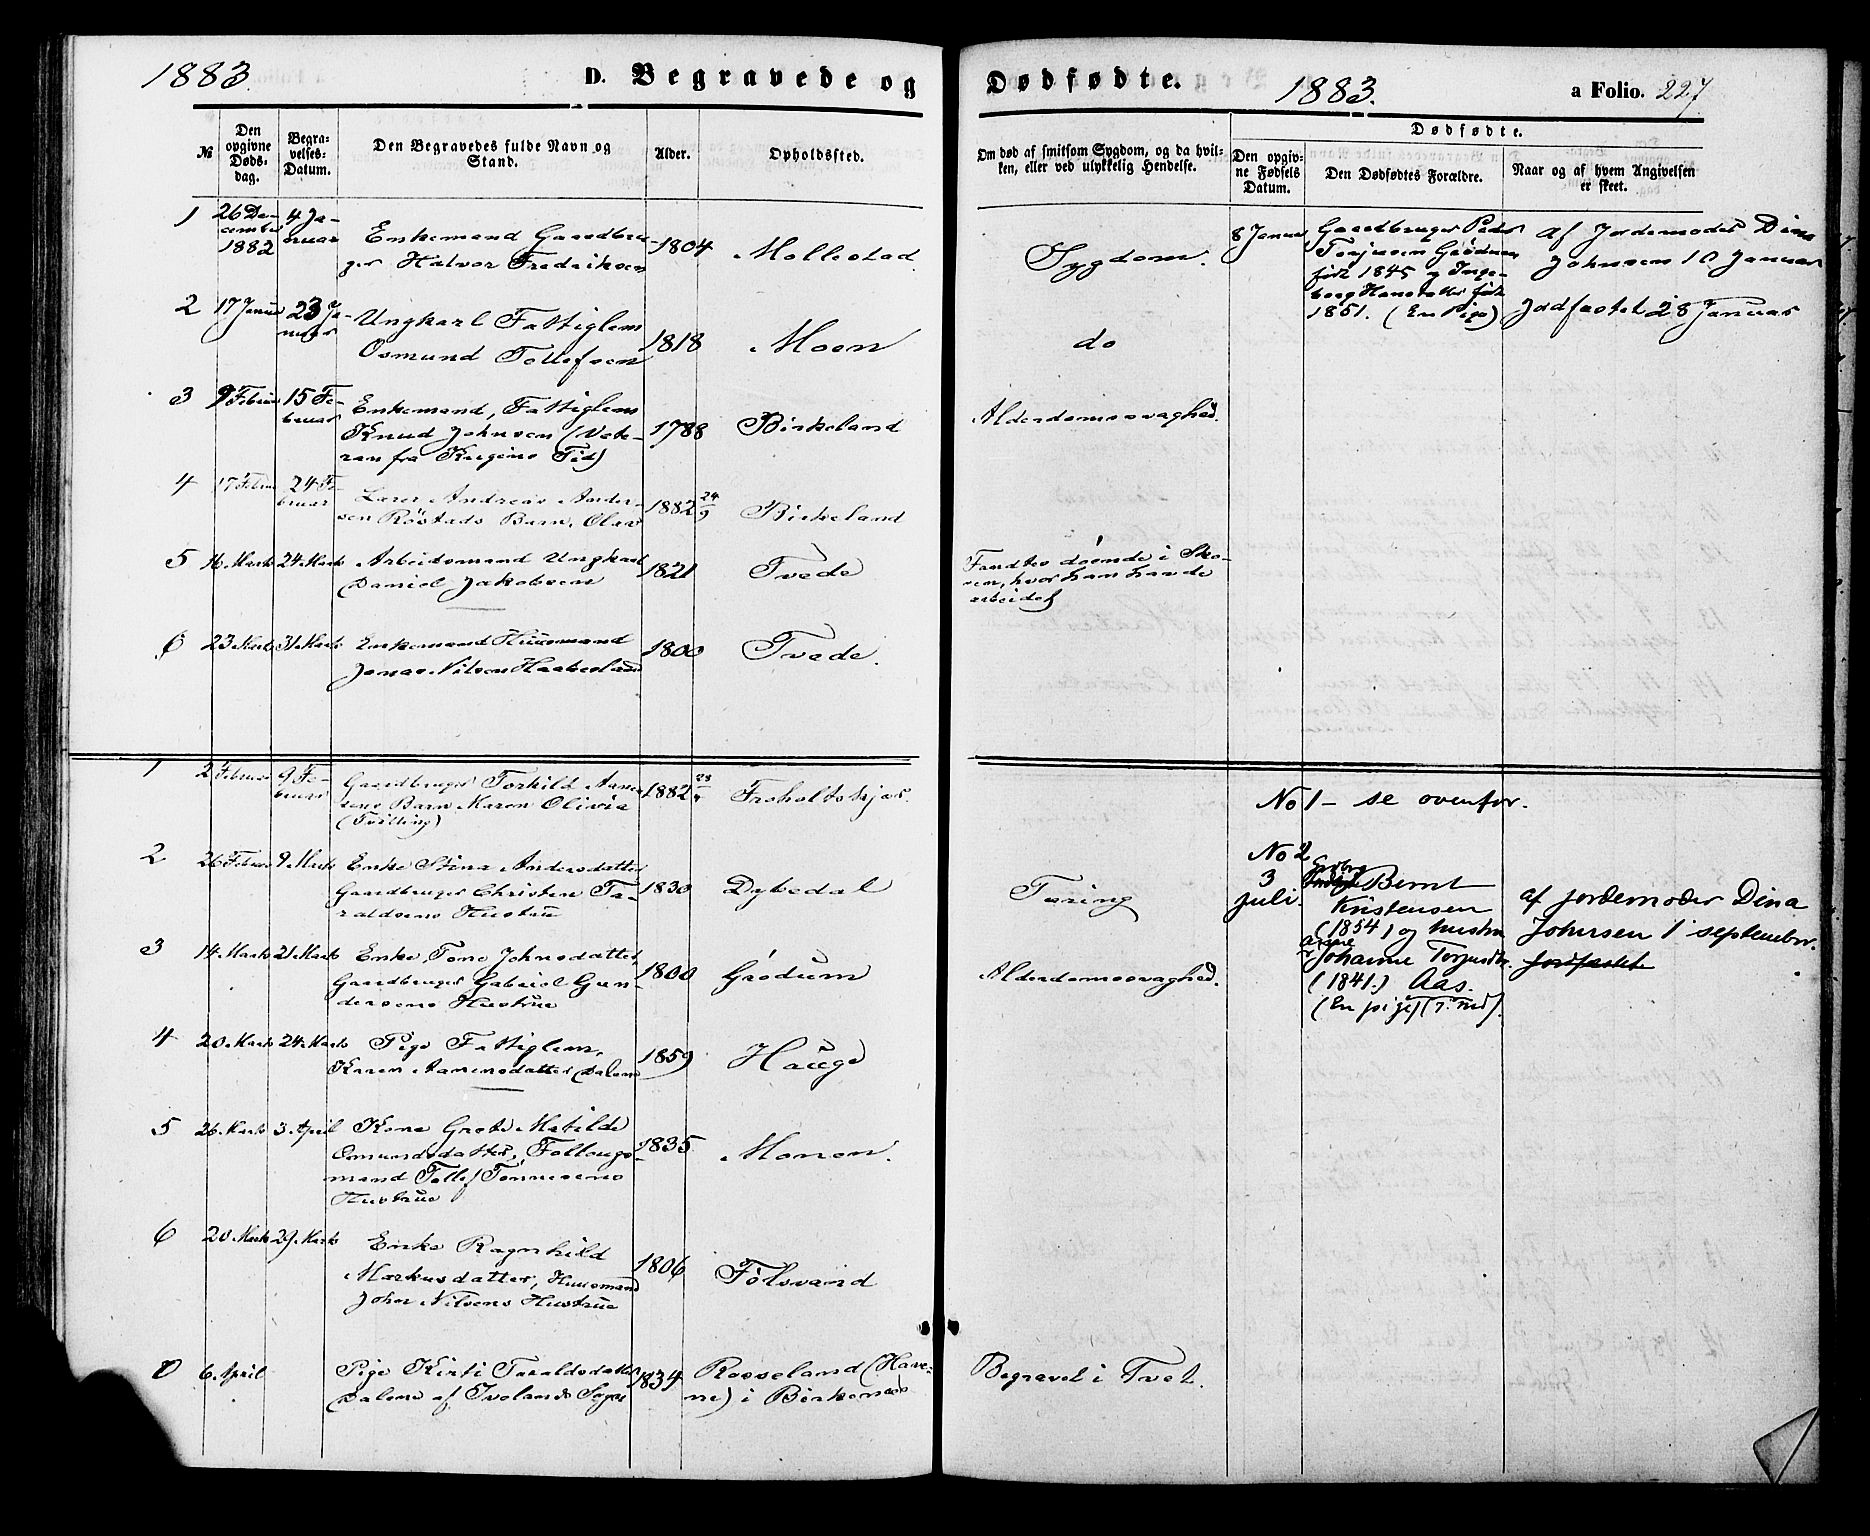 1883.
D. Begravede og
Dødfødte.
1883.
a Folio. 227
№
Den opgivne Døds-dag.
Begra-velses-Datum.
Den Begravedes fulde Navn og Stand.
Alder.
Opholdssted.
Om død af smitsom Sygdom, og da hvil-ken, eller ved ulykkelig Hendelse.
Dødfødte.
Den opgiv-ne Fødsels Datum.
Den Dødfødtes Forældre.
Naar og af hvem Angivelsen er skeet.
1
26 De-
cember
1882
4 Ja-
nuar
Enkemand Gaardbru-
ger Halvor Fredriksen
1804
Mollestad
Sygdom.
8 Januar
Gaardbruger Peder
Torjusen Grødum
født 1845 og Inge-
borg Hansdatter født
1851. (En Pige)
af Jordemoder Dina
Johnsen 10 Januar
Jordfæstet 28 Januar
2
17 Januar
23 Ja-
nuar
Ungkarl Fattiglem
Osmund Tollefsen
1818
Moen
do
3
9 Februar
15 Fe-
bruar
Enkemand, Fattiglem
Knud Johnsen (Vete-
ran fra Krigens Tid)
1788
Birkeland
Alderdomssvaghed.
4
17 Februar
24 Fe-
bruar
Lærer Andreas Ander-
sen Røstads Barn, Olav
1882 24/9
Birkeland
5
16 Marts
24 Marts
Arbeidsmand Ungkarl
Daniel Jakobsen
1821
Tvede
Fandtes døende i Sko-
ven, hvor han havde
arbeidet
6
23 Marts
31 Marts
Enkemand Huusmand
Jonas Nilsen Haabesland
1800
Tvede.
1
2 Februar
9 Fe-
bruar
Gaardbruger Torkild Aanen-
sens Barn Maren Olivia
(Tvilling)
1882
Froholtskjær.
No 1 - se ovenfor.
2
26 Februar
9 Marts
Enke Stina Andersdatter
Gaardbruger Christen Ta-
raldsens Hustrue
1830
Dybedal
Tæring
No 2
3
juli.
Gaardbrg Bernt
Kristensen
(1854) og hustru
Johanne Torjusdtr.
(1841.) Aas.
(En pige)
af jordemoder Dina
Johnsen 1 september.
Jordfæstet
3
14 Marts
21 Marts
Enke, Tone Johnsdatter,
Gaardbruger Gabriel Gun-
dersens Hustrue
1800
Grødum
Alderdomssvaghed.
4
20 Marts
24 Marts
Pige Fattiglem,
Karen Aanensdatter Dalene
1859
Hauge
5
26 Marts
3 April
Kone Grete Matilde
Osmundsdatter, Follaugs-
mand Tollef Tønnesens
Hustrue
1835
Monen.
6
20 Marts
29 Marts
Enke Ragnhild
Markusdatter, Huusmand
John Nilsens Hustrue
1806
Fölsvand
0
6 April
Pige Kirsti Taraldsdatter
Dalene af Ivelands Sogn
1834
Rosseland (Have-
ne) i Birkenes
Begravet i Tvet.